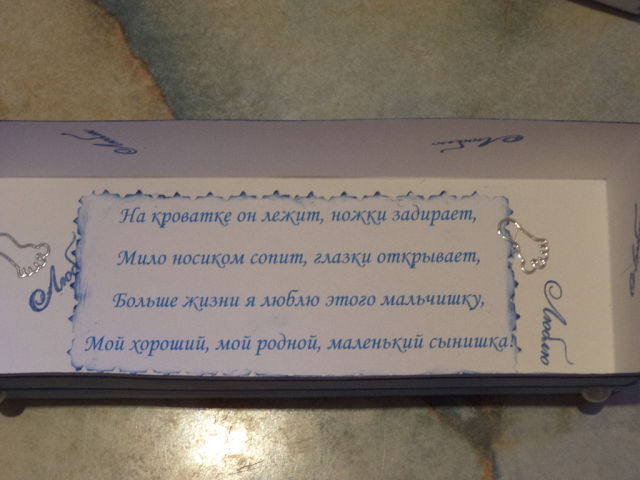 Люблю
Люблю
На кроватке он лежит, ножки задирает,
Мило носиком сопит, глазки открывает,
Больше жизни я люблю этого мальчишку,
Мой хороший, мой родной, маленький сынишка.
Люблю
Люблю